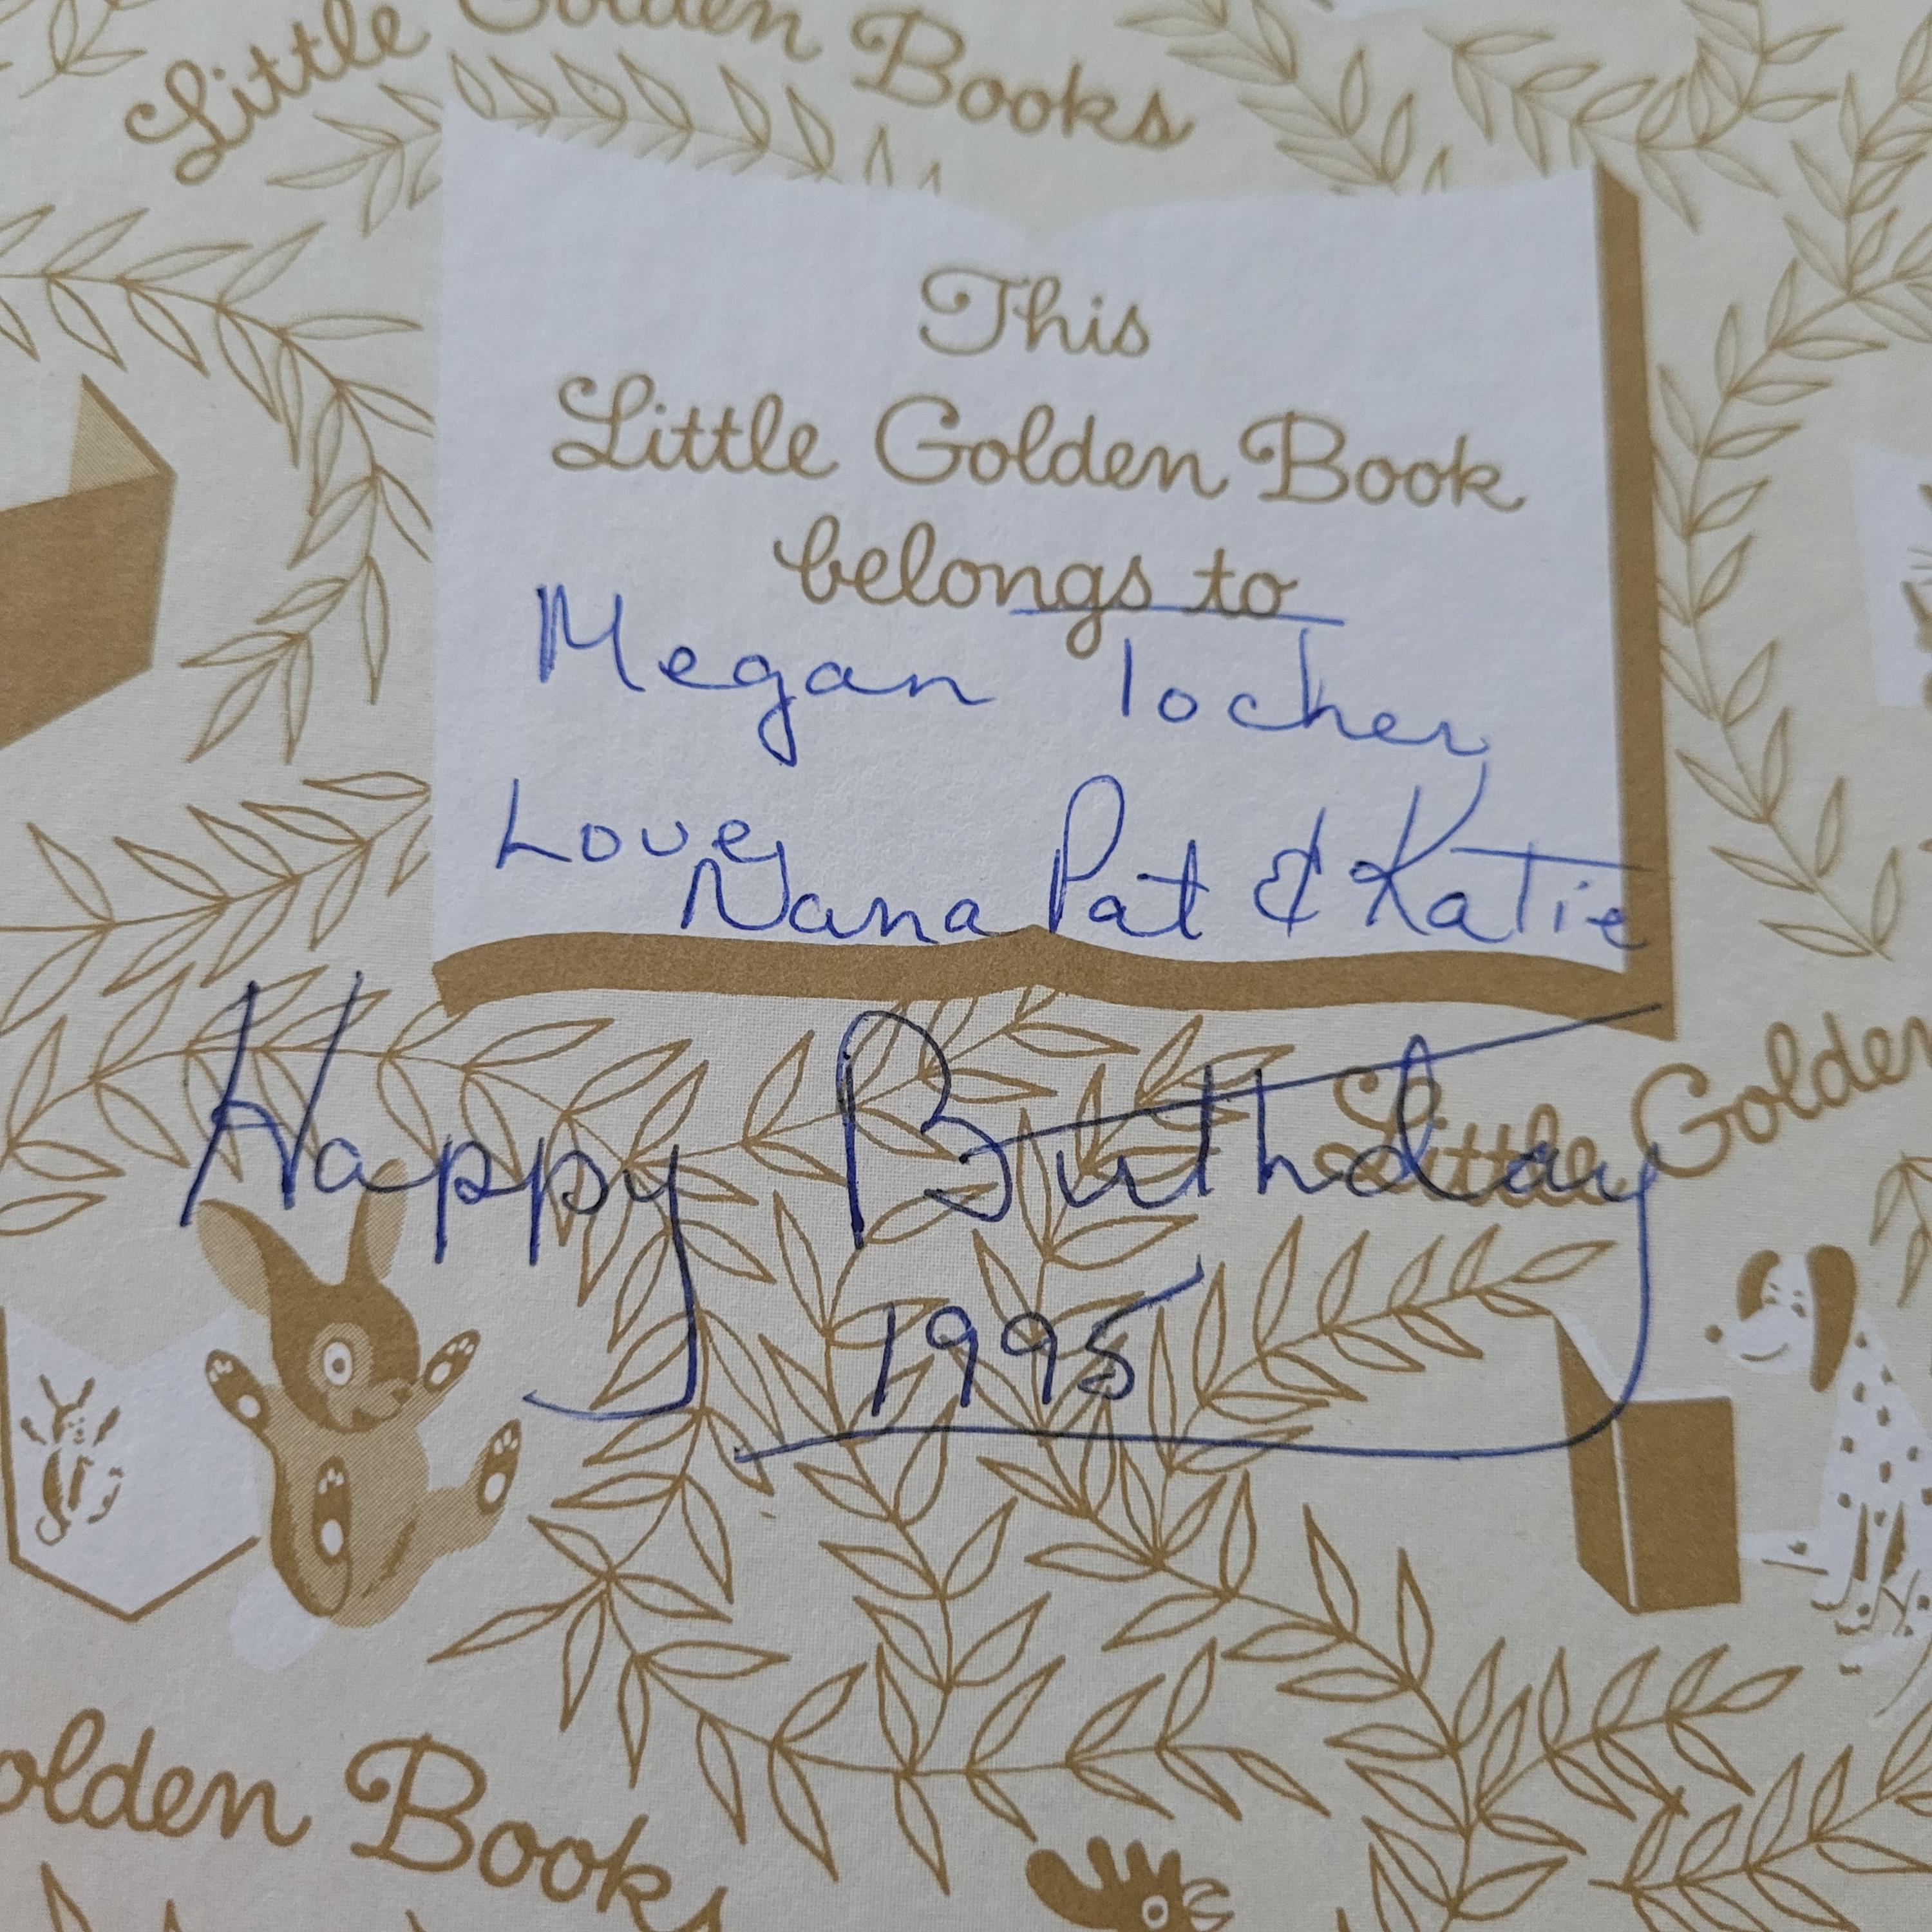 Little Golden Books
This
Little Golden Book
belongs to
Megan Tocher
Love,
Nana Pat & Katie
Happy Birthday
Little Golden
1995
Golden Books